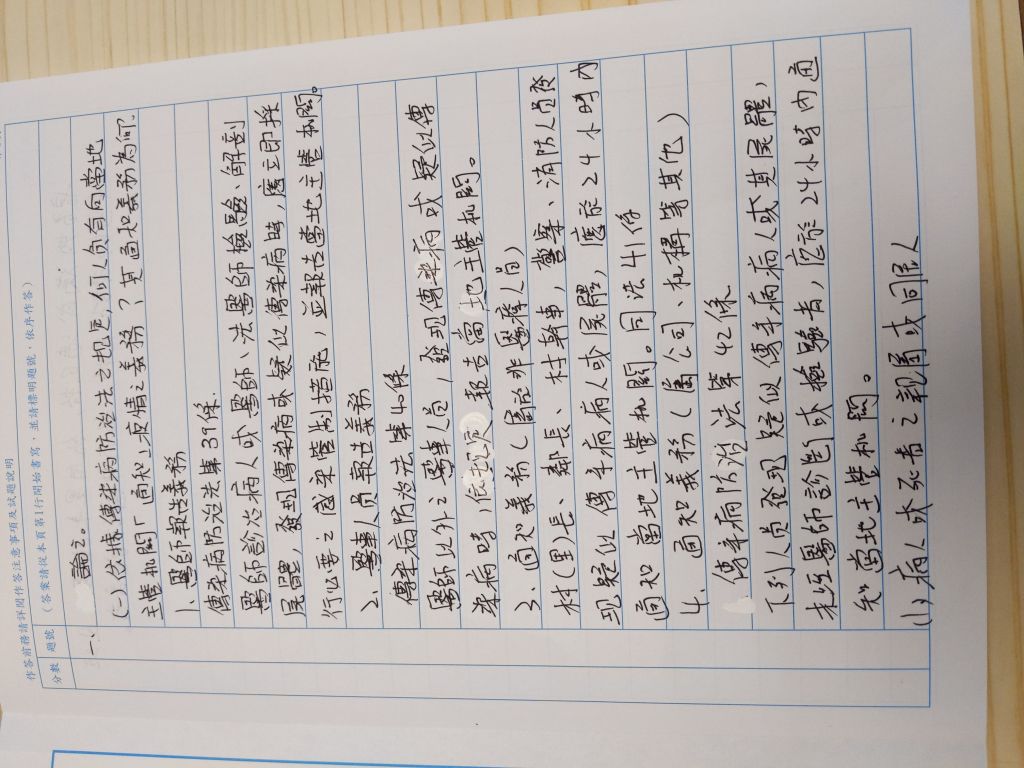 作答前務請詳閱作答注意事項及試題說明
（答案請從本頁第1行開始書寫，並請標明題號，依序作答）
分數 題號
一、 論之。
(一)依據傳染病防治法之規定,何人負有向當地
主管机關「通知」疫情之義務？其通知義務為何.
1. 醫師報告義務
傳染病防治法第39條.
醫師診治病人或醫師、法醫師檢驗、解剖
屍體，發現傳染病或疑似傳染病時，應立即採
行必要之感染管制措施，並報告當地主管机關。
2. 醫事人員報告義務
傳染病防治法第40條
醫師以外之醫事人員，發現傳染病或疑似傳
染病時，依規定報告當地主管机關。
3. 通知義務(屬於非醫療人員)
村(里)長、鄰長、村幹事，警察、消防人員發
現疑似傳染病病人或屍體，應於24小時內
通知當地主管机關。同法41條
4. 通知義務(屬公司、机構等其他)
傳染病防治法第42條
下列人員發現疑似傳染病病人或其屍體，
未經醫師診斷或檢驗者，應於24小時內通
知當地主管机關。
(1)病人或死者之親屬或同居人